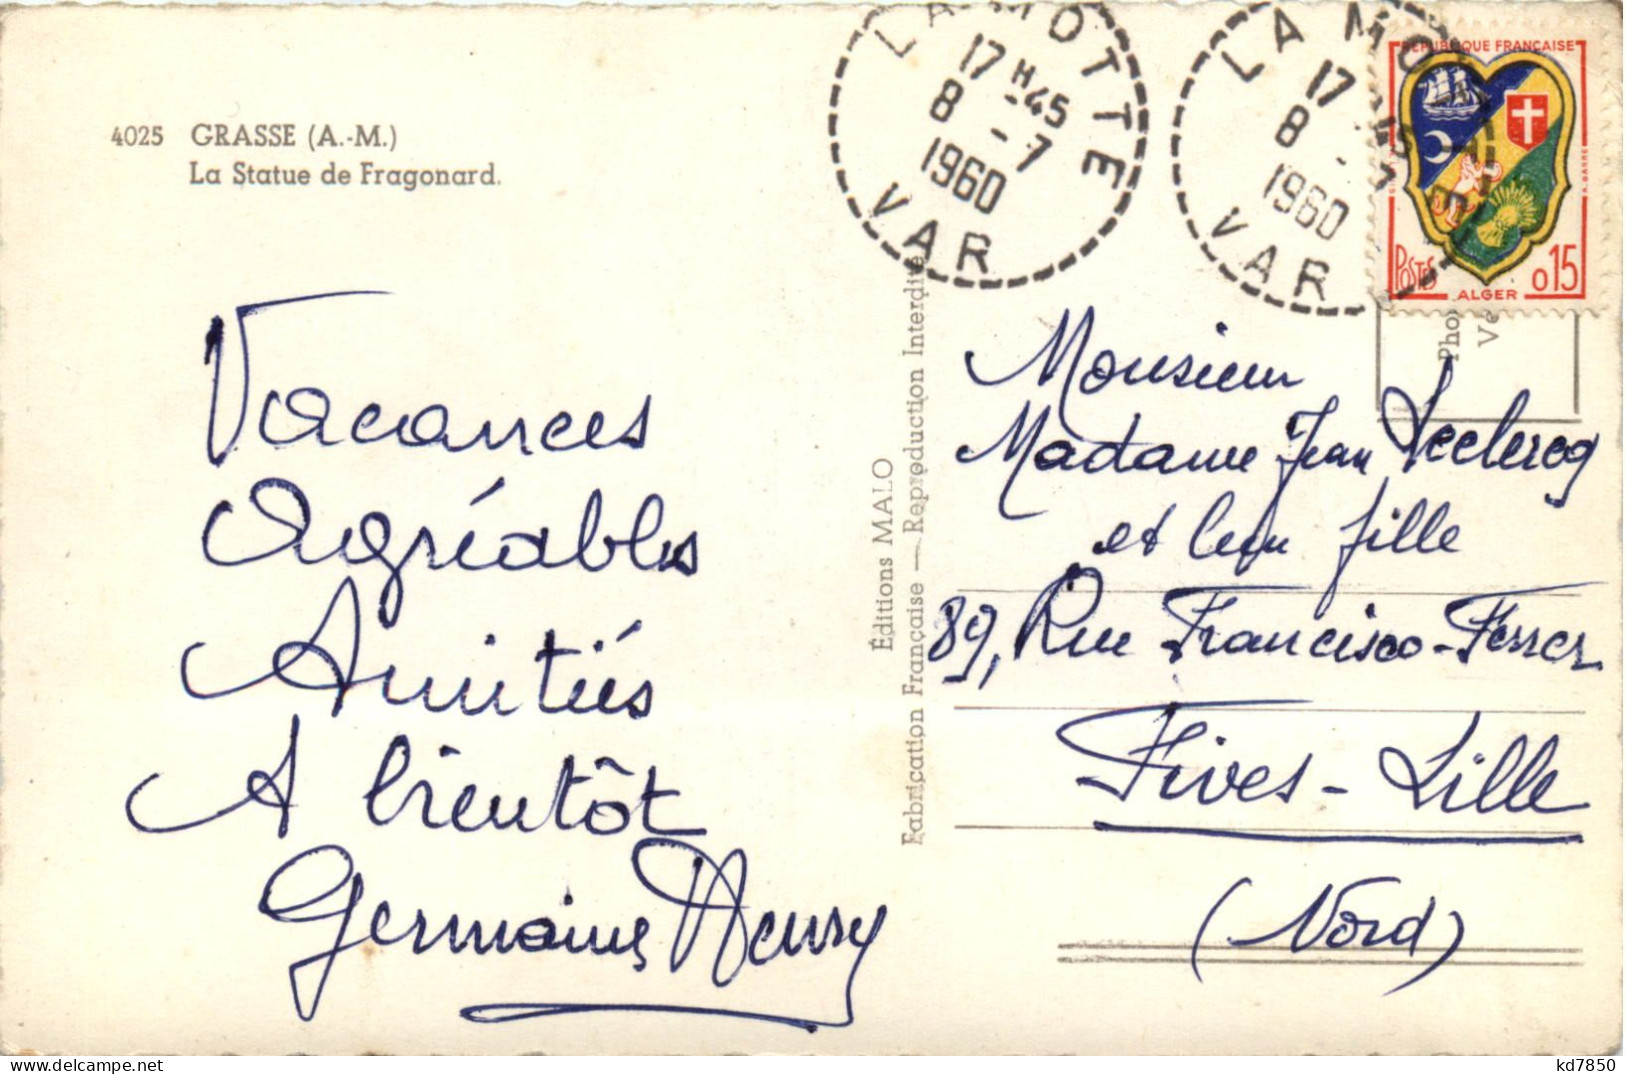 4025 GRASSE (A.-M.)
La Statue de Fragonard.
Vacances
Agréables
Amitiés
A bientôt
Germaine Henry
Éditions MALO
Fabrication Française — Reproduction Interdite
LA MOTTE
17 H 45
8 - 7
1960
VAR
LA MOTTE
17 H 45
8 - 7
1960
VAR
RÉPUBLIQUE FRANÇAISE
POSTES 0,15
ALGER
R. BARRE
Pho
Vé
Monsieur
Madame Jean Leclercq
et leur fille
89, Rue Francisco-Ferrer
Fives-Lille
(Nord)
kd7850